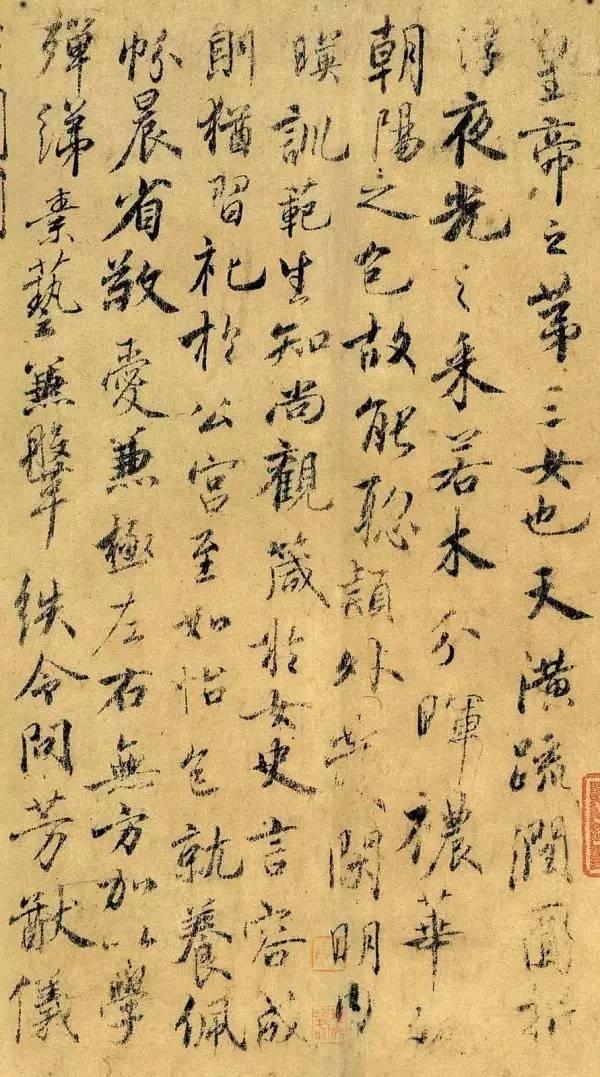 皇帝之第三女也天潢疏潤圓折
浮夜光之采若木分暉襛華照
朝陽之色故能聡穎外發閑明內
暎訓範生知尚觀箴於女史言容成
則猶習礼於公宮至如怡色就養佩
帉晨省敬愛兼極左右無方加以學
殫綈素藝兼鞶紩令問芳猷儀